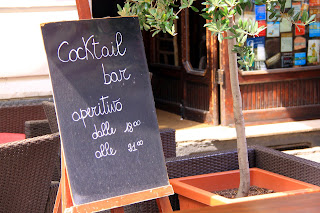 Cocktail
bar
aperitivo
dalle 18.00
alle 21.00